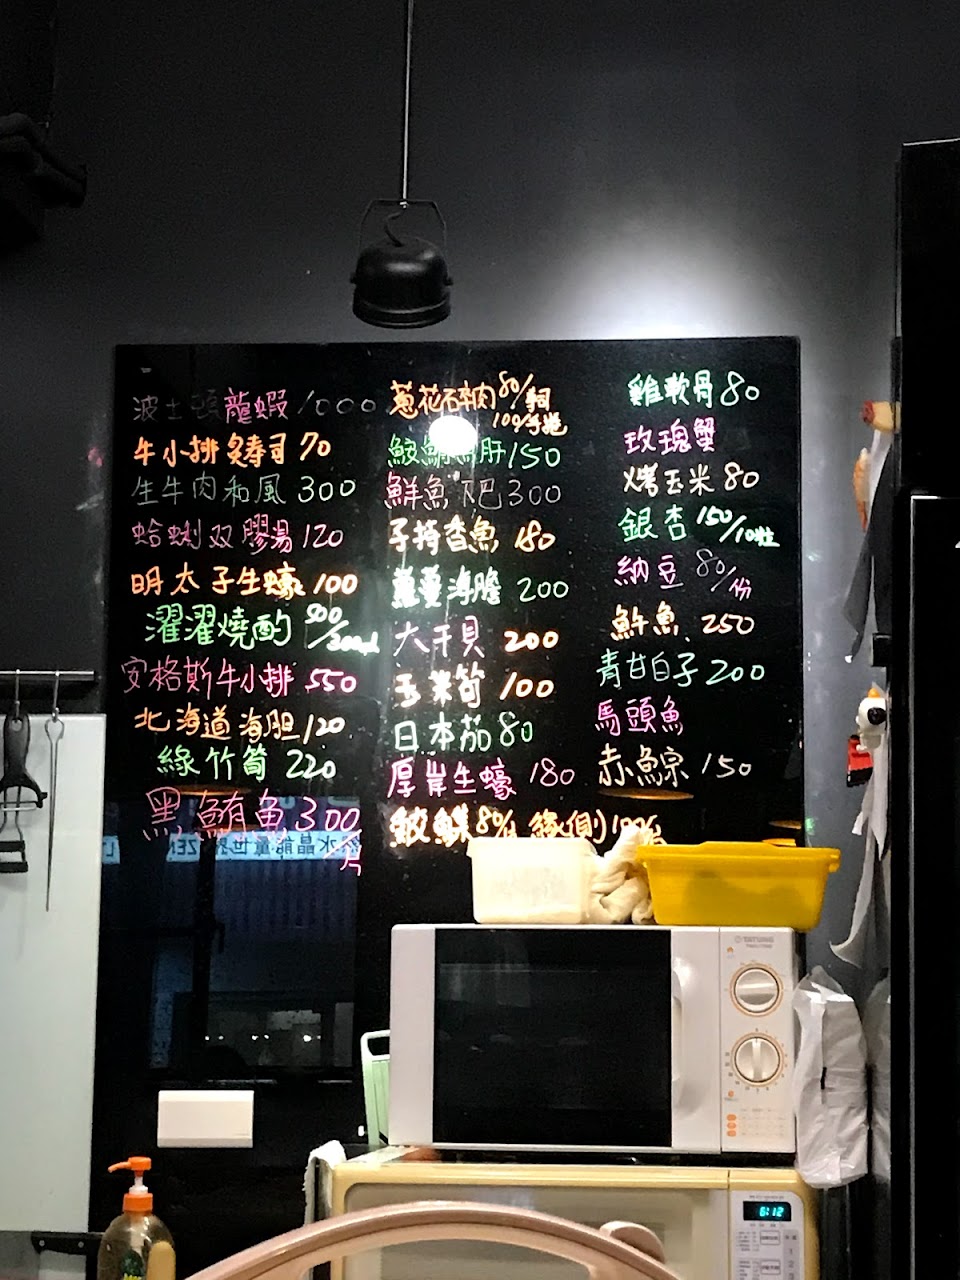 波士頓龍蝦 1000
牛小排炙壽司 70
生牛肉和風 300
蛤蜊双膠湯 120
明太子生蠔 100
濯濯燒酌 500/200ml
安格斯牛小排 550
北海道海胆 120
綠竹筍 220
黑鮪魚 300/片
蔥花碎肉 80/壽司
100/手卷
鮟鱇魚肝 150
鮮魚下巴 300
子持香魚 180
蘿蔓海膽 200
大干貝 200
玉米筍 100
日本茄 80
厚岸生蠔 180
緣側 100
雞軟骨 80
玫瑰蟹
烤玉米 80
銀杏 150/10粒
納豆 80/份
魽魚 250
青甘白子 200
馬頭魚
赤鯮 150
TATUNG
6:12